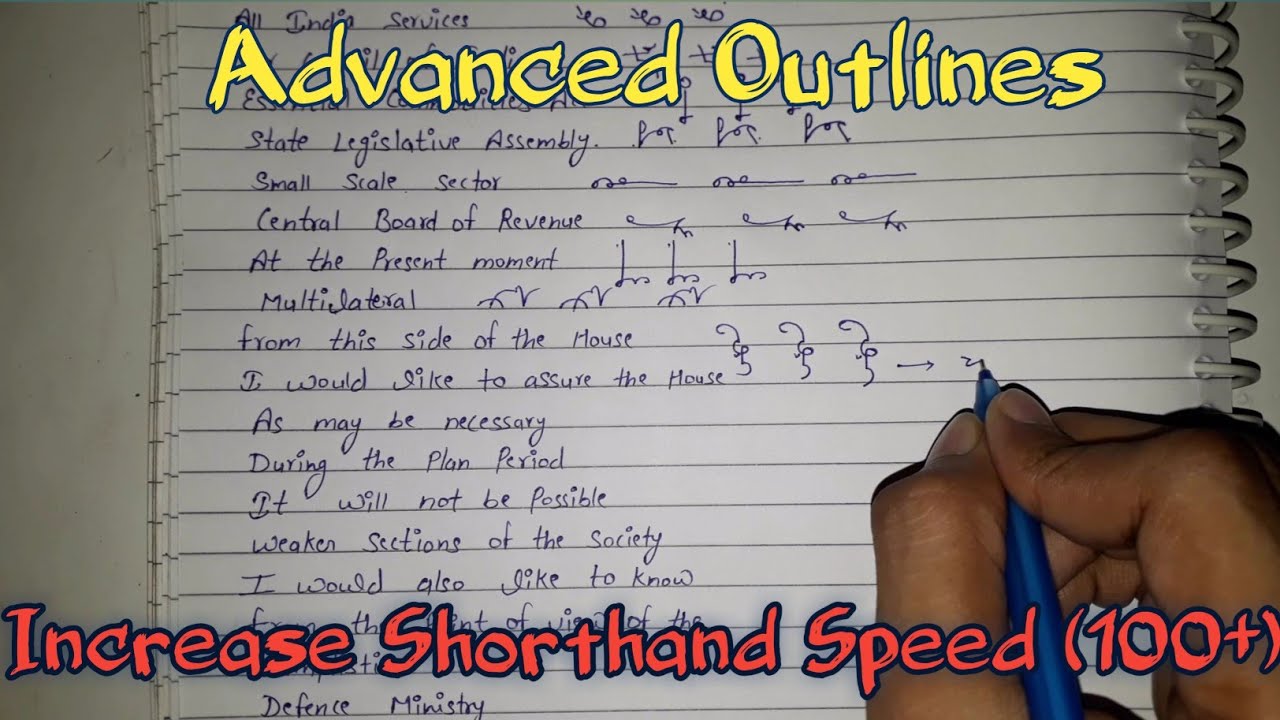 All India Services
Advanced Outlines
Essential Commodities
State Legislative Assembly.
Small Scale Sector
Central Board of Revenue
At the Present moment
Multilateral
from this side of the House
I would like to assure the House
As may be necessary
During the Plan Period
It will not be Possible
weaker sections of the society
I would also like to know
from the point of view of the
Increase Shorthand Speed (100+)
Defence Ministry